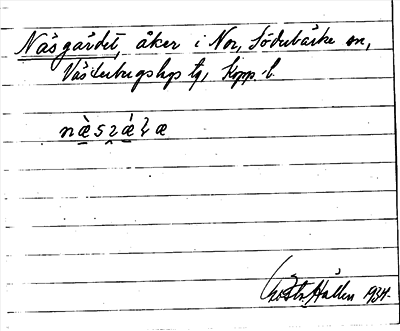 Näsgärdet, åker i Nor, Söderbärke sn,
Västerbergslags tg, Kopp. l.
næ̀sɀǽꞎæ
Gösta Hallén 1934.